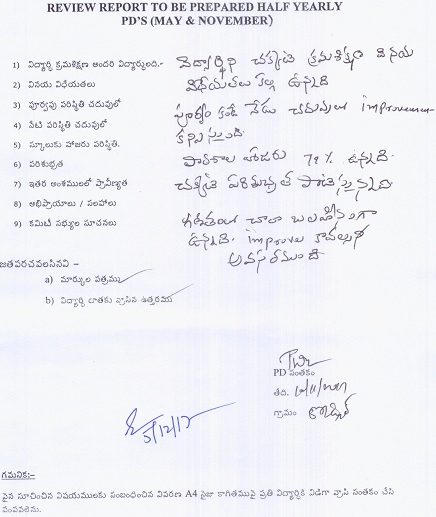 REVIEW REPORT TO BE PREPARED HALF YEARLY
PD'S (MAY & NOVEMBER)
1) విద్యార్థి క్రమశిక్షణ అందరి విద్యార్థులది.- విద్యార్థిని చక్కని క్రమశిక్షణ వినయ
2) వినయ విధేయతలు విధేయతలు కల్గి ఉన్నది
3) పూర్వపు పరిస్థితి చదువులో పూర్వం కంటే నేడు చదువులో improvement
4) నేటి పరిస్థితి చదువులో కనబడుతుంది.
5) స్కూలుకు హాజరు పరిస్థితి. పాఠశాల హాజరు 79% ఉన్నది.
6) పరిశుభ్రత చక్కని పరిశుభ్రత పాటిస్తున్నది
7) ఇతర అంశములలో ప్రావీణ్యత
8) అభిప్రాయాలు / సలహాలు గణితంలో చాలా బలహీనంగా
9) కమిటీ సభ్యుల సూచనలు ఉన్నది. improve కావల్సిన
అవసరముంది
జతపరచవలసినవి –
a) మార్కుల పత్రము
b) విద్యార్థి దాతకు వ్రాసిన ఉత్తరము
PD సంతకం
తేది.
గ్రామం
5/12/17
గమనిక:–
పైన సూచించిన విషయములకు సంబంధించిన వివరణ A4 సైజు కాగితముపై ప్రతి విద్యార్థికి విడిగా వ్రాసి సంతకం చేసి
పంపవలెను.